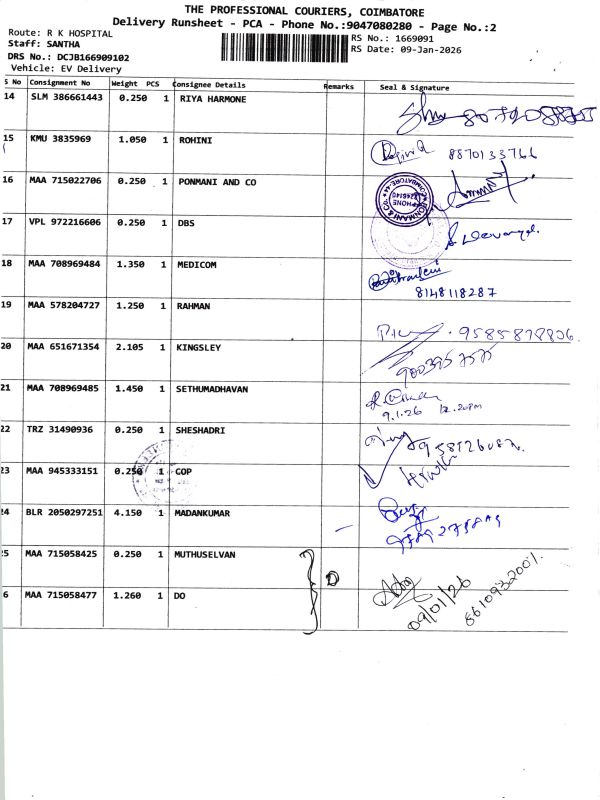 THE PROFESSIONAL COURIERS, COIMBATORE
Delivery Runsheet - PCA - Phone No.:9047080280 - Page No.:2
Route: R K HOSPITAL
Staff: SANTHA
DRS No.: DCJB166909102
Vehicle: EV Delivery
RS No.: 1669091
RS Date: 09-Jan-2026
S No Consignment No Weight PCS Consignee Details Remarks Seal & Signature
14 SLM 386661443 0.250 1 RIYA HARMONE
15 KMU 3835969 1.050 1 ROHINI 8870133766
16 MAA 715022706 0.250 1 PONMANI AND CO
17 VPL 972216606 0.250 1 DBS
18 MAA 708969484 1.350 1 MEDICOM
8148118287
19 MAA 578204727 1.250 1 RAHMAN
20 MAA 651671354 2.105 1 KINGSLEY
21 MAA 708969485 1.450 1 SETHUMADHAVAN
9.1.26 12.20pm
22 TRZ 31490936 0.250 1 SHESHADRI
23 MAA 945333151 0.250 1 COP
24 BLR 2050297251 4.150 1 MADANKUMAR
5 MAA 715058425 0.250 1 MUTHUSELVAN
6 MAA 715058477 1.260 1 DO
09/01/26